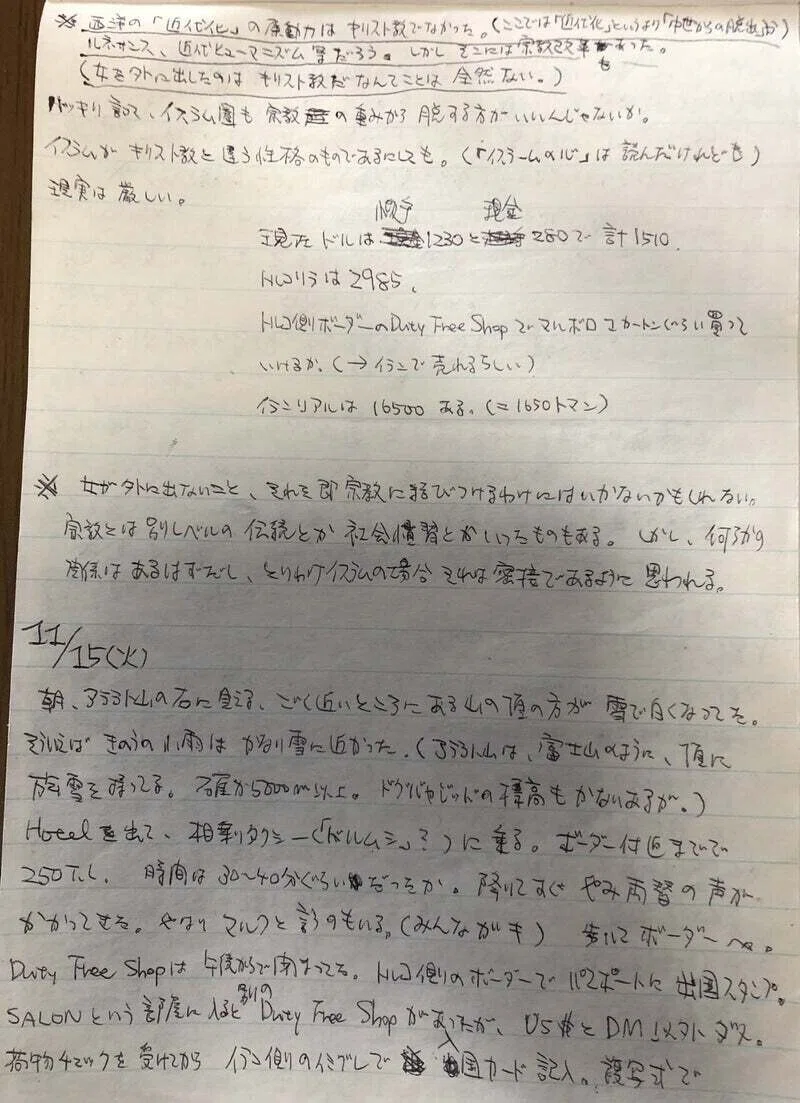 ※ 西洋の「近代化」の原動力はキリスト教でなかった。(ここでは「近代化」というより「中世からの脱出」か)
ルネサンス、近代ヒューマニズム等だろう。しかしそこには宗教改革もあった。
(女を外に出したのはキリスト教だなんてことは全然ない。)
ハッキリ言って、イスラム圏も宗教の重みから脱する方がいいんじゃないか。
イスラムがキリスト教と違う性格のものであるにしても。(「イスラームの心」は読んだけれども)
現実は厳しい。
現在ドルは T/C 1230と 現金 280で計1510.
トルコリラは2985.
トルコ側ボーダーのDuty Free Shopでマルボロ2カートンぐらい買って
いけるか。(→イランで売れるらしい)
イランリアルは16500ある。(=1650トマン)
※ 女が外に出ないこと、それを即宗教に結びつけるわけにはいかないかもしれない。
宗教とは別レベルの伝統とか社会慣習とかいったものもある。しかし、何らかの
関係はあるはずだし、とりわけイスラムの場合それは密接であるように思われる。
11/15(火)
朝、アララト山の右に見える、ごく近いところにある山の頂の方が雪で白くなってた。
そういえばきのうの小雨はかなり雪に近かった。(アララト山は、富士山のように、頂に
雪を持ってる。確か5000m以上。ドグバヤジッドの標高もかなりあるが。)
Hotelを出て、相乗りタクシー(「ドルムシュ」?)に乗る。ボーダー付近までで
250T.L. 時間は30〜40分ぐらいだったか。降りてすぐやみ両替の声が
かかってきた。やはりマルクと言うのもいる。(みんなガキ) 歩いてボーダーへ。
Duty Free Shopは午後からで閉まってる。トルコ側のボーダーでパスポートに出国スタンプ。
SALONという部屋に入ると別のDuty Free Shopがあったが、US$とDM以外ダメ。
荷物チェックを受けてからイラン側のイミグレで入国カード記入。複写式で